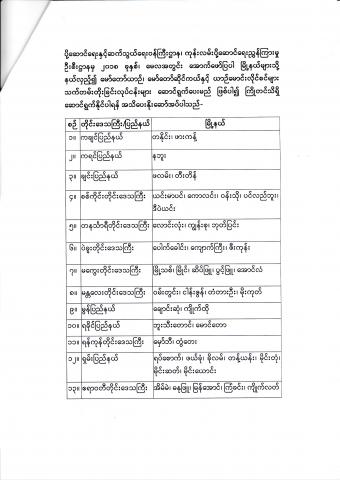 ပို့ဆောင်ရေးနှင့်ဆက်သွယ်ရေးဝန်ကြီးဌာန၊ ကုန်းလမ်းပို့ဆောင်ရေးညွှန်ကြားမှု
ဦးစီးဌာနမှ ၂၀၁၈ ခုနှစ်၊ မေလအတွင်း အောက်ဖော်ပြပါ မြို့နယ်များသို့
နယ်လှည့်၍ မော်တော်ယာဉ်၊ မော်တော်ဆိုင်ကယ်နှင့် ယာဉ်မောင်းလိုင်စင်များ
သက်တမ်းတိုးခြင်းလုပ်ငန်းများ ဆောင်ရွက်ပေးမည် ဖြစ်ပါ၍ ကြိုတင်သိရှိ
ဆောင်ရွက်နိုင်ပါရန် အသိပေးနှိုးဆော်အပ်ပါသည်-
စဉ် တိုင်းဒေသကြီး/ပြည်နယ် မြို့နယ်
၁။ ကချင်ပြည်နယ် တနိုင်း၊ ဖားကန့်
၂။ ကရင်ပြည်နယ် နဘူး
၃။ ချင်းပြည်နယ် ဖလမ်း၊ တီးတိန်
၄။ စစ်ကိုင်းတိုင်းဒေသကြီး ယင်းမာပင်၊ ကောလင်း၊ ဝန်းသို၊ ပင်လည်ဘူး၊
ဒီပဲယင်း
၅။ တနင်္သာရီတိုင်းဒေသကြီး လောင်းလုံး၊ ကျွန်းစု၊ ဘုတ်ပြင်း
၆။ ပဲခူးတိုင်းဒေသကြီး ပေါက်ခေါင်း၊ ကျောက်ကြီး၊ ဇီးကုန်း
၇။ မကွေးတိုင်းဒေသကြီး မြို့သစ်၊ မြိုင်၊ ဆိပ်ဖြူ၊ ပွင့်ဖြူ၊ အောင်လံ
၈။ မန္တလေးတိုင်းဒေသကြီး ဝမ်းတွင်း၊ ငါန်းဇွန်၊ တံတားဦး၊ မိုးကုတ်
၉။ မွန်ပြည်နယ် ချောင်းဆုံ၊ ကျိုက်ထို
၁၀။ ရခိုင်ပြည်နယ် ဘူးသီးတောင်၊ မောင်တော
၁၁။ ရန်ကုန်တိုင်းဒေသကြီး မှော်ဘီ၊ တွံတေး
၁၂။ ရှမ်းပြည်နယ် ရပ်စောက်၊ ဖယ်ခုံ၊ ခိုလမ်၊ တန့်ယန်း၊ မိုင်းတုံ၊
မိုင်းဆတ်၊ မိုင်းယောင်း
၁၃။ ဧရာဝတီတိုင်းဒေသကြီး အိမ်မဲ၊ ဓနုဖြူ၊ မြန်အောင်၊ ကြံခင်း၊ ကျိုက်လတ်